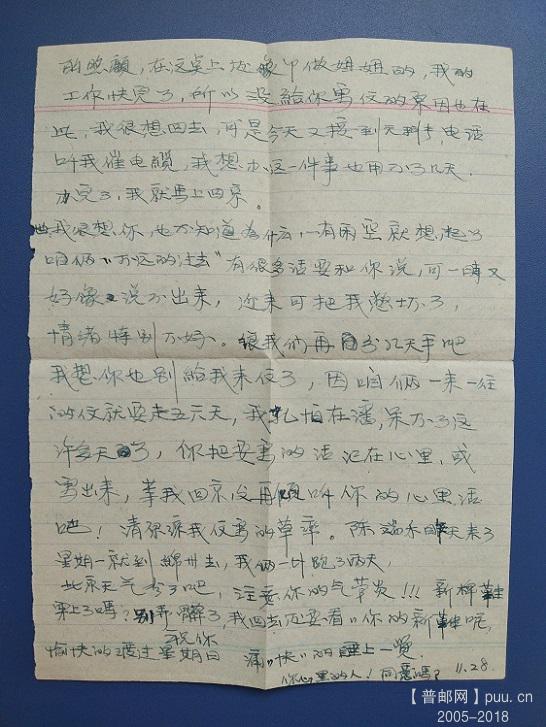 的照顧，在这桌上还像叩做姐姐的，我的
工作快完了，所以没給你写仅的原因也在
此，我很想回去，可是今天又接到天津电话
叫我催电纜，我想办这一件事也用不了几天，
办完了，我就马上回京。
我很想你，也不知道为什么，一有闲空就想起了
咱俩“不远的过去”有很多话要和你说，可一時又
好像又说不出来，近来可把我憋坏了，
情绪特别不好。狠我们再分几天手吧
我想你也别給我来仅了，因咱俩一来一往
的仅就要走五六天，我扎怕在潘，呆不了这
许多天了，你把要写的话记在心里，或
写出来，等我回京后再倾听你的心里话
吧！请原諒我仅写的草率。陈瑞禾昨天来了
星期一就到錦州去，我俩一块跑了两天，
北京天气冷了吧，注意你的气管炎!!!新棉鞋
穿上了嗎？别弄髒了，我回去还要看“你的新鞋呢，
祝你
愉快的渡过星期日 痛“快”的睡上一觉
你心里的人！同意嗎？ 11.28.
【普邮网】puu.cn
2005-2018